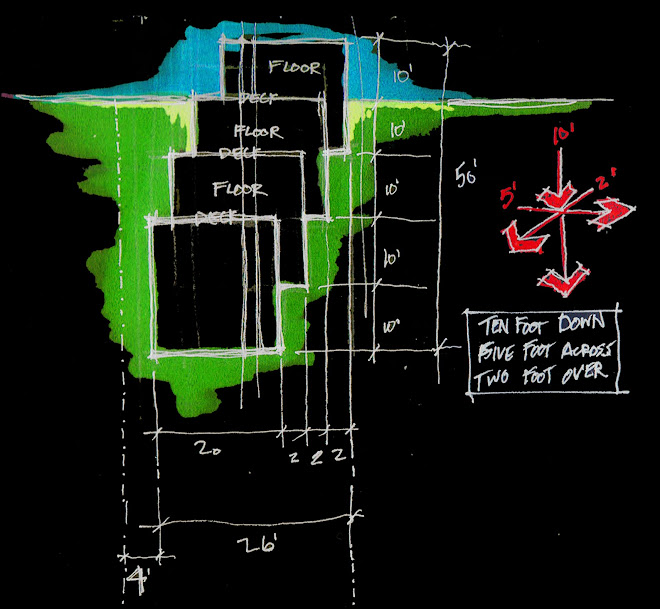 FLOOR
10'
DECK
FLOOR
10'
10'
DECK
50'
FLOOR
10'
5'
2'
DECK
10'
10'
TEN FOOT DOWN
FIVE FOOT ACROSS
TWO FOOT OVER
20
2
2
2
26'
4'